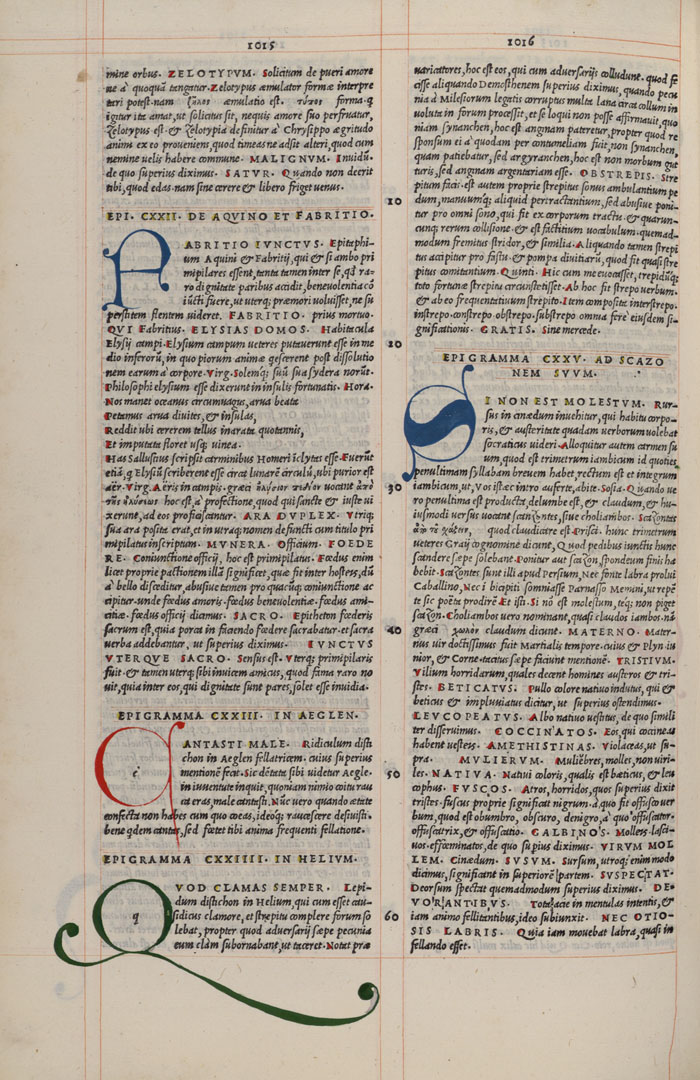 1015
mine orbus. ZELOTYPVM. Solicitum de pueri amore
ne à quoquā tangatur. Zelotypus æmulator formæ interpre
tari potest. nam ζῆλος æmulatio est. τύπος forma. q
igitur ita amat, ut solicitus sit, nequis amore suo perfruatur,
Zelotypus est. & Zelotypia definitur à Chrysippo ægritudo
animi ex eo proueniens, quod timeas ne adsit alteri, quod cum
nemine uelis habere commune. MALIGNVM. Inuidū.
de quo superius diximus. SATVR. Quando non deerit
tibi, quod edas. nam sine cerere & libero friget uenus.
EPI. CXXII. DE AQVINO ET FABRITIO.
FABRITIO IVNCTVS. Epitaphi-
um Aquini & Fabritij, qui & si ambo pri
mipilares essent, tanta tamen inter se, qđ ra-
ro dignitate paribus accidit, beneuolentia cō
iūcti fuere, ut uterq; præmori uoluisset, ne su
perstitem flentem uideret. FABRITIO. prius mortuo.
QVI Fabritius. ELYSIAS DOMOS. Habitacula
Elysij campi. Elysium campum ueteres putauerunt esse in me
dio inferorū, in quo piorum animæ q̄escerent post dissolutio
nem earum à corpore. Virg. Solemq; suū sua sydera norūt.
Philosophi elysium esse dixerunt in insulis fortunatis. Hora.
Nos manet oceanus circumuagus, arua beata
Petamus arua diuites, & insulas,
Reddit ubi cererem tellus inarata quotannis,
Et imputata floret usq; uinea.
Has Sallustius scripsit carminibus Homeri īclytas esse. Fuerūt
etiā, q Elysiū scriberent esse circa lunarē circulū, ubi purior est
aër. Virg. Aëris in campis. græci ἠλύσιον πεδίον uocant ἀπὸ
τῆς ἐλεύσεως hoc est, à profectione, quod qui sancte & iuste ui
xerunt, ad eos proficiscantur. ARA DVPLEX. Vtriq;
sua ara posita erat, et in utraq; nomen defuncti cum titulo pri
mipilatus inscriptum. MVNERA. Officium. FOEDE
RE. Coniunctione officij, hoc est primipilatus. Fœdus enim
licet proprie pactionem illā significet, quæ fit inter hostes, dū
à bello disceditur, abusiue tamen pro quacūq; coniunctione ac
cipitur. unde fœdus amoris. fœdus beneuolentiæ. fœdus ami-
citiæ. fœdus officij dicimus. SACRO. Epitheton fœderis
sacrum est, quia porca in faciendo fœdere sacrabatur. et sacra
uerba addebantur, ut superius diximus. IVNCTVS
VTERQVE SACRO. Sensus est. Vterq; primipilaris
fuit. & tamen uterq; sibi inuicem amicus, quod fama raro no
uit, quia inter eos, qui dignitate sunt pares, solet esse inuidia.
EPIGRAMMA CXXIII. IN AEGLEN.
CANTASTI MALE. Ridiculum disti
chon in Aeglen fellatricem. cuius superius
mentionē fecit. Sic ditate sibi uidetur Aegle.
in iuuentute inquit, quoniam nimio coitu rau
ca eras, male cantasti. Nūc uero quando ætate
confecta non habes cum quo coeas, ideoq; raucescere desiuisti.
bene qdem cantas, sed fœtet tibi anima frequenti fellatione.
EPIGRAMMA CXXIIII. IN HELIVM.
QVOD CLAMAS SEMPER. Lepi-
dum distichon in Helium, qui cum esset cau-
sidicus clamore, et strepitu complere forum so
lebat, propter quod aduersarij sæpe pecunia
eum clàm subornabant, ut taceret. Notat præ
1016
uaricatores, hoc est eos, qui cum aduersarijs colludunt. quod fe
cisse aliquando Demosthenem superius diximus, quando pecu
nia à Milesiorum legatis corruptus multa lana circa collum in
uolutus in forum processit, et se loqui non posse affirmauit, quo
niam synanchen, hoc est anginam pateretur, propter quod re
sponsum ei à quodam per contumeliam fuit, non synanchen,
quam patiebatur, sed argyranchen, hoc est non morbum gut
turis, sed anginam argentariam esse. OBSTREPIS. Stre
pitum facis. est autem proprie strepitus sonus ambulantium pe
10 dum, manuumq; aliquid pertractantium, sed abusiue poni
tur pro omni sono, qui fit ex corporum tractu. & quarun-
cunq; rerum collisione. & est factitium uocabulum. quemad-
modum fremitus stridor, & similia. Aliquando tamen strepi
tus accipitur pro fastu. & pompa diuitiarū, quod fit quasi stre
pitus comitantium. Quinti. Hic cum me euocasset, trepidūq;
toto fortunæ strepitu circunstetisset. Ab hoc fit strepo uerbum.
& ab eo frequentatiuum strepito. Item composita interstrepo.
instrepo. constrepo obstrepo. substrepo omnia ferè eiusdem si-
gnificationis. GRATIS. Sine mercede.
20
EPIGRAMMA CXXV. AD SCAZO
NEM SVVM.
SI NON EST MOLESTVM. Rur-
sus in cinædum inuehitur, qui habitu corpo-
ris, & austeritate quadam uerborum uolebat
socraticus uideri. Alloquitur autem carmen su
um, quod est trimetrum iambicum id quoties
penultimam syllabam breuem habet, rectum est et integrum
30 iambicum, ut, Vos istæc intro auferte, abite. Sosia. Quando ue
ro penultima est producta, delumbe est, & claudum, & hu-
iusmodi uersus uocant scazontes, siue choliambos. Scazontes
ἀπὸ τοῦ σκάζειν, quod claudicare est. Prisci. hunc trimetrum
ueteres Græci cognomine dicunt, Quod pedibus iunctis hunc
scandere sæpe solebant. Ponitur aut scazon, spondeum finis ha
bebit. Scazontes sunt illi apud Persium, Nec fonte labra prolui
Caballino, Nec i bicipiti somniasse Parnasso Memini, ut repē
te sic poëta prodirē. Et isti. Si nō est molestum, teq; non piget
scazon. Choliambos uero nominant, quasi claudos iambos. nā
40 græci χωλὸν claudum dicunt. MATERNO. Mater-
nus uir doctissimus fuit Martialis tempore. cuius & Plyn iu
nior, & Corne. tacitus sæpe faciunt mentionē. TRISTIVM.
Vilium horridarum, quales decent homines austeros & tri-
stes. BETICATVS. Pullo colore natiuo indutus, qui &
beticus & impluuiatus dicitur, ut superius ostendimus.
LEVCOPEATVS. Albo natiuo uestitus, de quo simili
ter disseruimus. COCCINATOS. Eos, qui coccineas
habent uestes. AMETHISTINAS. Violaceas, ut su-
pra. MVLIERVM. Muliebres, molles, non uiri-
50 les. NATIVA. Natiui coloris, qualis est bæticus, & leu
cophus. FVSCOS. Atros, horridos, quos superius dixit
tristes. fuscus proprie significat nigrum. à quo fit offusco uer
bum, quod est obumbro, obscuro, denigro, à quo offuscator.
offuscatrix, & offuscatio. GALBINOS. Molles. lasci-
uos. effœminatos, de quo supius diximus. VIRVM MOL
LEM. Cinædum. SVSVM. Sursum, utroq; enim modo
dicimus, significant in superiorē partem. SVSPECTAT.
Deorsum spectat quemadmodum superius diximus. DE-
VORANTIBVS. Tota facie in mentulas intentis, &
60 iam animo fellitantibus, ideo subiunxit. NEC OTIO-
SIS LABRIS. Quia iam mouebat labra, quasi in
fellando esset.